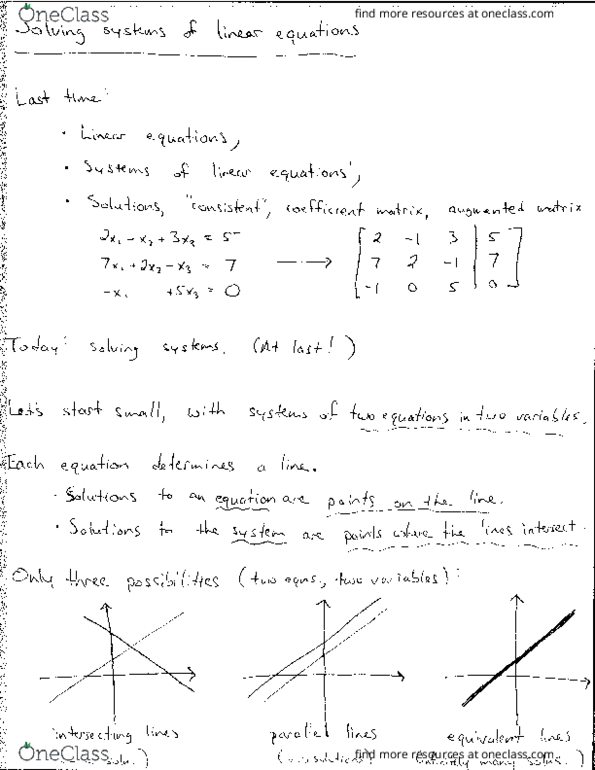 OneClass
find more resources at oneclass.com
Solving systems of linear equations
Last time:
• Linear equations,
• Systems of linear equations,
• Solutions, "consistent", coefficient matrix, augmented matrix
2x₁ - x₂ + 3x₃ = 5
7x₁ + 2x₂ - x₃ = 7
-x₁ +5x₃ = 0
⟶
[ 2 -1 3 | 5 ]
[ 7 2 -1 | 7 ]
[ -1 0 5 | 0 ]
Today: solving systems. (At last!)
Let's start small, with systems of two equations in two variables.
Each equation determines a line.
• Solutions to an equation are points on the line.
• Solutions to the system are points where the lines intersect.
Only three possibilities (two eqns, two variables):
intersecting lines
parallel lines
equivalent lines
soln.)
solution
many solns.)
OneClass
find more resources at oneclass.com